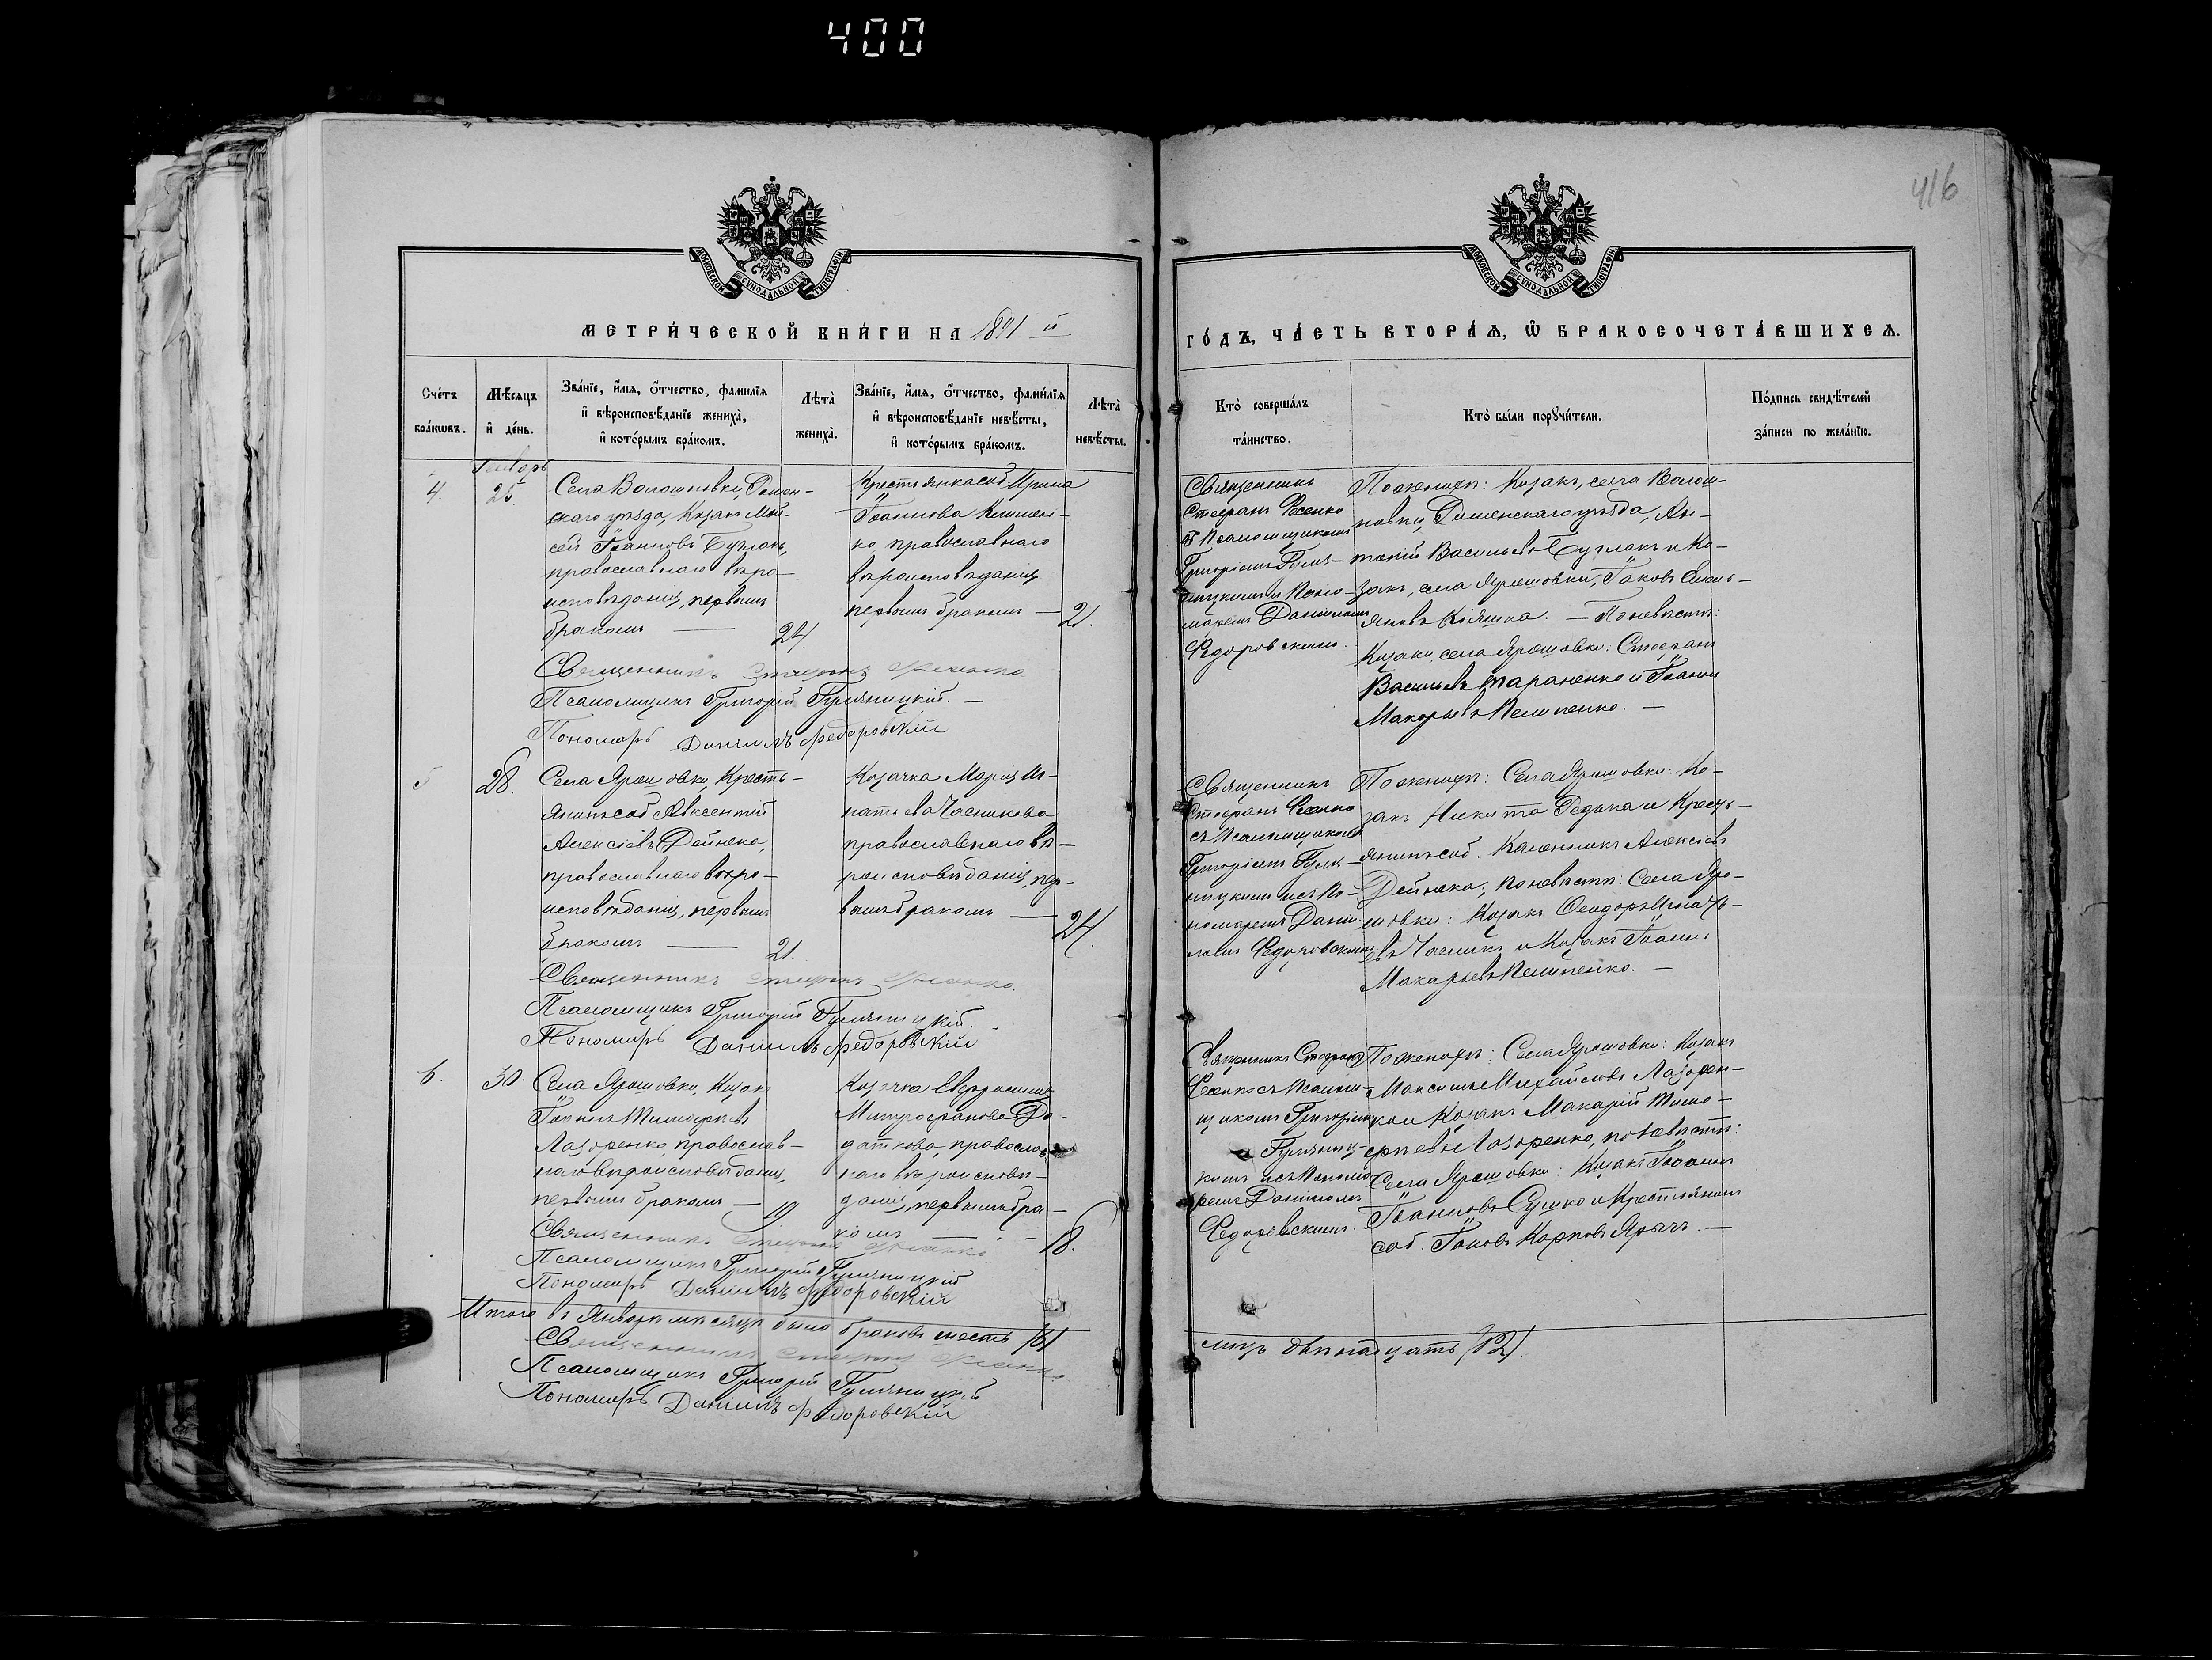 400
416
МОСКОВСКОЙ СѴНОДАЛЬНОЙ ТИПОГРАФІИ
МОСКОВСКОЙ СѴНОДАЛЬНОЙ ТИПОГРАФІИ
МЕТРИ́ЧЕСКОЙ КНИ́ГИ НА 1891 й
ГО́ДЪ, ЧА́СТЬ ВТОРА́Ѧ, Ѽ БРАКОСОЧЕТА́ВШИХСѦ.
Сче́тъ бра́кѡвъ.
Мѣ́сяцъ и҆ де́нь.
Зва́нїе, и҆́мя, ѻ҆́тчество, фами́лїя
и҆ вѣроисповѣ́данїе жениха̀,
и҆ кото́рымъ бра́комъ.
Лѣта̀
жениха̀.
Зва́нїе, и҆́мя, ѻ҆́тчество, фами́лїя
и҆ вѣроисповѣ́данїе невѣ́сты,
и҆ кото́рымъ бра́комъ.
Лѣта̀
невѣ́сты.
Кто̀ соверша́лъ
та́инство.
Кто̀ бы́ли пору́чители.
По́дпись свидѣ́телей
за́писи по жела́нїю.
4.
25.
Села Волошновки, Ромен-
скаго уѣзда, Козакъ Мой-
сей Іоанновъ Бугланъ,
православнаго вѣро-
исповѣданія, первымъ
бракомъ —
24.
Крестьянка соб. Ирина
Іоаннова
православнаго
вѣроисповѣданія
первымъ бракомъ —
21.
Священникъ
Стефанъ Фесенко
Псаломщикомъ
Григоріемъ
Даниломъ
Федоровскимъ.
По женихѣ: Козакъ, села Волош-
новки, Роменскаго уѣзда, Ан-
тоній Васильевъ Бугланъ и Ко-
закъ, села Ярошовки, Іаковъ
Кіяшка. — По невѣстѣ:
Козаки, села Ярошовки: Стефанъ
Васильевъ Тараненко и Іоаннъ
Макарьевъ Пелипенко. —
Священникъ Стефанъ Фесенко
Псаломщикъ Григорій Гуляницкій. —
Пономарь Даніилъ Федоровскій
5
28.
Села Ярошовки, Кресть-
янинъ соб. Авксентій
Алексіевъ Дейнека,
православнаго вѣро-
исповѣданія, первымъ
бракомъ —
21.
Козачка Марія Иг-
натьева Часникова
православнаго вѣ-
роисповѣданія, пер-
вымъ бракомъ —
24.
Священникъ
Стефанъ Фесенко
съ Псаломщикомъ
Григоріемъ Гуля-
ницкимъ и съ По-
номаремъ Дани-
ломъ Федоровскимъ.
По женихѣ: Села Ярошовки: Ко-
закъ Никита Редька и Кресть-
янинъ соб. Алексіевъ
Дейнека; по невѣстѣ: Села Яро-
шовки: Козакъ Феодоръ Игнать-
евъ Часникъ и Козакъ Іоаннъ
Макарьевъ Пелипенко. —
Священникъ Стефанъ Фесенко.
Псаломщикъ Григорій Гуляницкій.
Пономарь Даніилъ Федоровскій
6.
30.
Села Ярошовки, Козакъ
Іоаннъ Тимофеевъ
Лазоренко, православ-
наго вѣроисповѣданія,
первымъ бракомъ —
19
Козачка Евфросинія
Митрофанова До-
даткова, православ-
наго вѣроисповѣ-
данія, первымъ бра-
комъ —
18.
Священникъ Стефанъ
Фесенко съ Псалом-
щикомъ Григоріемъ
Гуляниц-
кимъ и съ Понома-
ремъ Даниломъ
Федоровскимъ.
По женихѣ: Села Ярошовки: Козакъ
Максимъ Михайловъ Лазорен-
ко и Козакъ Макарій Тимо-
феевъ Лазоренко, по невѣстѣ:
Села Ярошовки: Козакъ Іоаннъ
Іоанновъ Сушко и Крестьянинъ
соб. Іаковъ Карповъ Ярычъ. —
Священникъ Стефанъ Фесенко
Псаломщикъ Григорій Гуляницкій
Пономарь Даніилъ Федоровскій
Итого въ Январѣ мѣсяцѣ было браковъ шесть /6/
лицъ двѣнадцать /12/.
Священникъ Стефанъ Фесенко
Псаломщикъ Григорій Гуляницкій
Пономарь Даніилъ Федоровскій